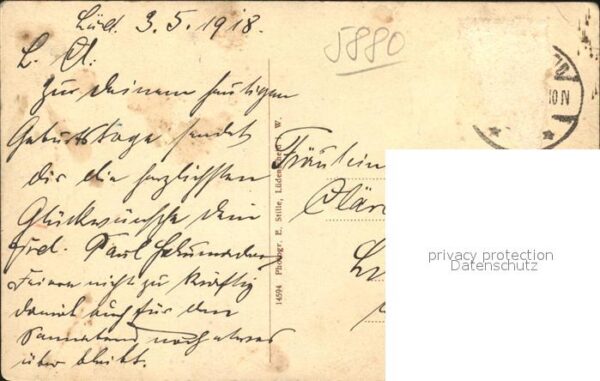 Lüd. 3.5.1918.
5880
L. Cl.
Zur Deinem heutigen
Geburtstage sendet
Dir die herzlichsten
Glückwünsche Dein
Frd. Paul Schumacher
Feiere nicht zu kräftig
damit auch für den
Sonnabend noch etwas
über bleibt.
14594 Photogr. E. Stille, Lüdenscheid i. W.
Fräulein
Clär
10 N
privacy protection
Datenschutz